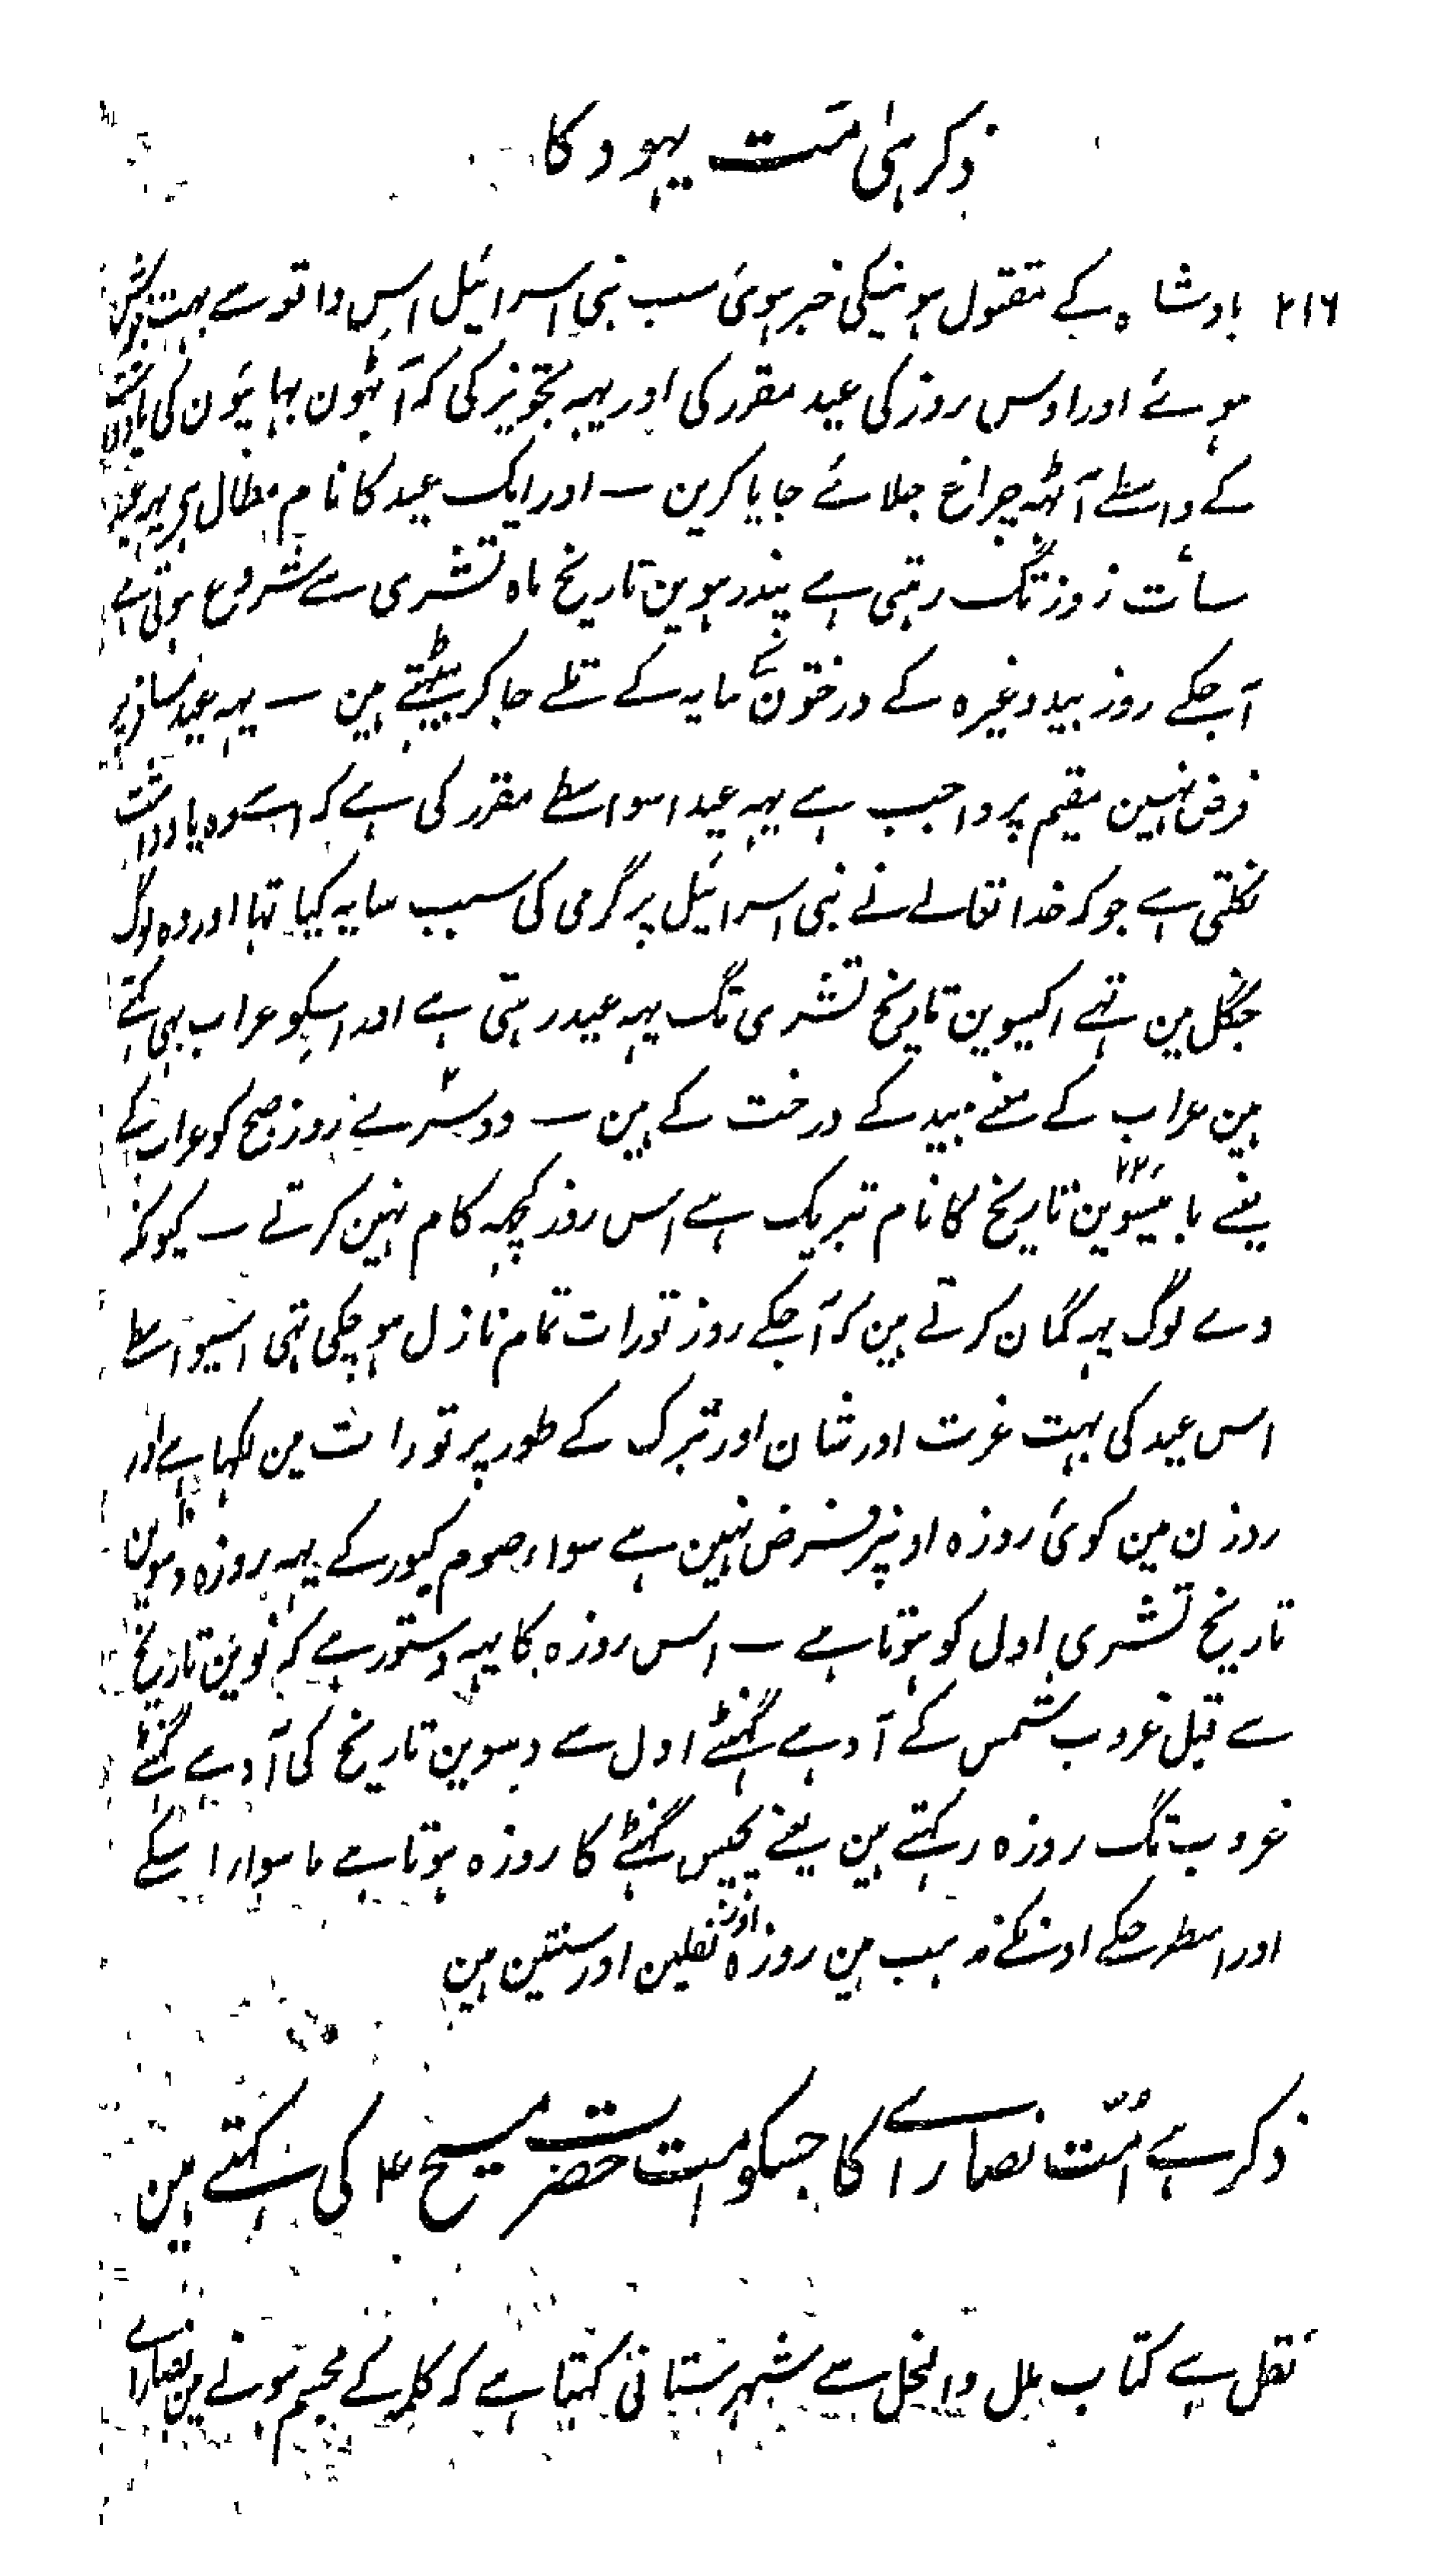 ذکر ہی امّت یہود کا
۲۱۶ بادشاہ کے مقتول ہونیکی خبر ہوئی سب بنی اسرائیل اس واقع سے بہت خوش
ہوئے اور اوس روز کی عید مقرر کی اور یہہ تجویز کی کہ آٹہون بہائیون کی یادداشت
کے واسطے آٹہہ چراغ جلائے جایا کرین ۔ اور ایک عید کا نام مظال ہی یہہ عید
سات روز تک رہتی ہے پندرہوین تاریخ ماہ تشری سے شروع ہوتی ہے
آجکے روز بید وغیرہ کے درختون کے سایہ کے تلے جا کر بیٹہتے ہین ۔ یہہ عید مسافر پر
فرض نہین مقیم پر واجب ہے یہہ عید اسواسطے مقرر کی ہے کہ اسے وہ یادداشت
نکلتی ہے جو کہ خدا تعالے نے بنی اسرائیل پر گرمی کی سبب سایہ کیا تہا اور وہ لوگ
جنگل مین تہے اکیسوین تاریخ تشری تک یہہ عید رہتی ہے اور اسکو عراب بہی کہتے
ہین عراب کے معنے بید کے درخت کے ہین ۔ دوسرے روز صبح کو عراب کے
یعنے بائیسوین ۲۲ تاریخ کا نام تبریک ہے اس روز کچہہ کام نہین کرتے ۔ کیونکہ
وے لوگ یہہ گمان کرتے ہین کہ آجکے روز تورات تمام نازل ہو چکی تہی اسیواسطے
اس عید کی بہت عزت اور شان اور تبرک کے طور پر تورات مین لکہا ہے اور
روزن مین کوئی روزہ اونپر فرض نہین ہے سواء صوم کپور کے یہہ روزہ دسوین
تاریخ تشری اول کو ہوتا ہے ۔ اس روزہ کا یہہ دستور ہے کہ نوین تاریخ
سے قبل غروب شمس کے آدہے گہنٹے اول سے دسوین تاریخ کی آدہے گہنٹے
غروب تک روزہ رکہتے ہین یعنے پچیس گہنٹے کا روزہ ہوتا ہے ماسوا اسکے
اور اسطرحکے اونکے مذہب مین روزہ اور نفلین اور سنتین ہین
ذکر ہے اُمّت نصارے کا جسکو امت حضرت مسیح ء کی کہتے ہین
نقل ہے کتاب ملل والنحل سے شہرستانی کہتا ہے کہ کلمہ کے مجسم ہونے مین نصارے